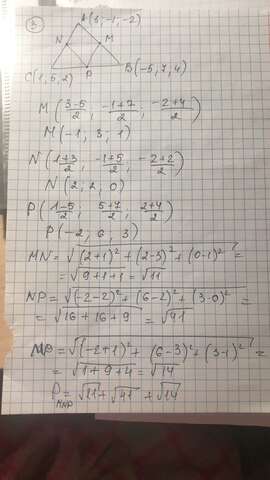 3
A(3; -1; -2)
N M
C(1; 5; 2) P B(-5; 7; 4)
M(3-5/2; -1+7/2; -2+4/2)
M(-1; 3; 1)
N(1+3/2; -1+5/2; -2+2/2)
N(2; 2; 0)
P(1-5/2; 5+7/2; 2+4/2)
P(-2; 6; 3)
MN = √(2+1)² + (2-3)² + (0-1)² =
= √9+1+1 = √11
NP = √(-2-2)² + (6-2)² + (3-0)² =
= √16+16+9 = √41
MP = √(-2+1)² + (6-3)² + (3-1)² =
= √1+9+4 = √14
P MNP = √11 + √41 + √14